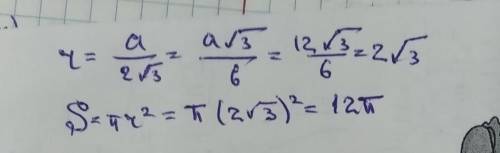 .)
r = a / 2√3 = a√3 / 6 = 12√3 / 6 = 2√3
S = πr² = π(2√3)² = 12π